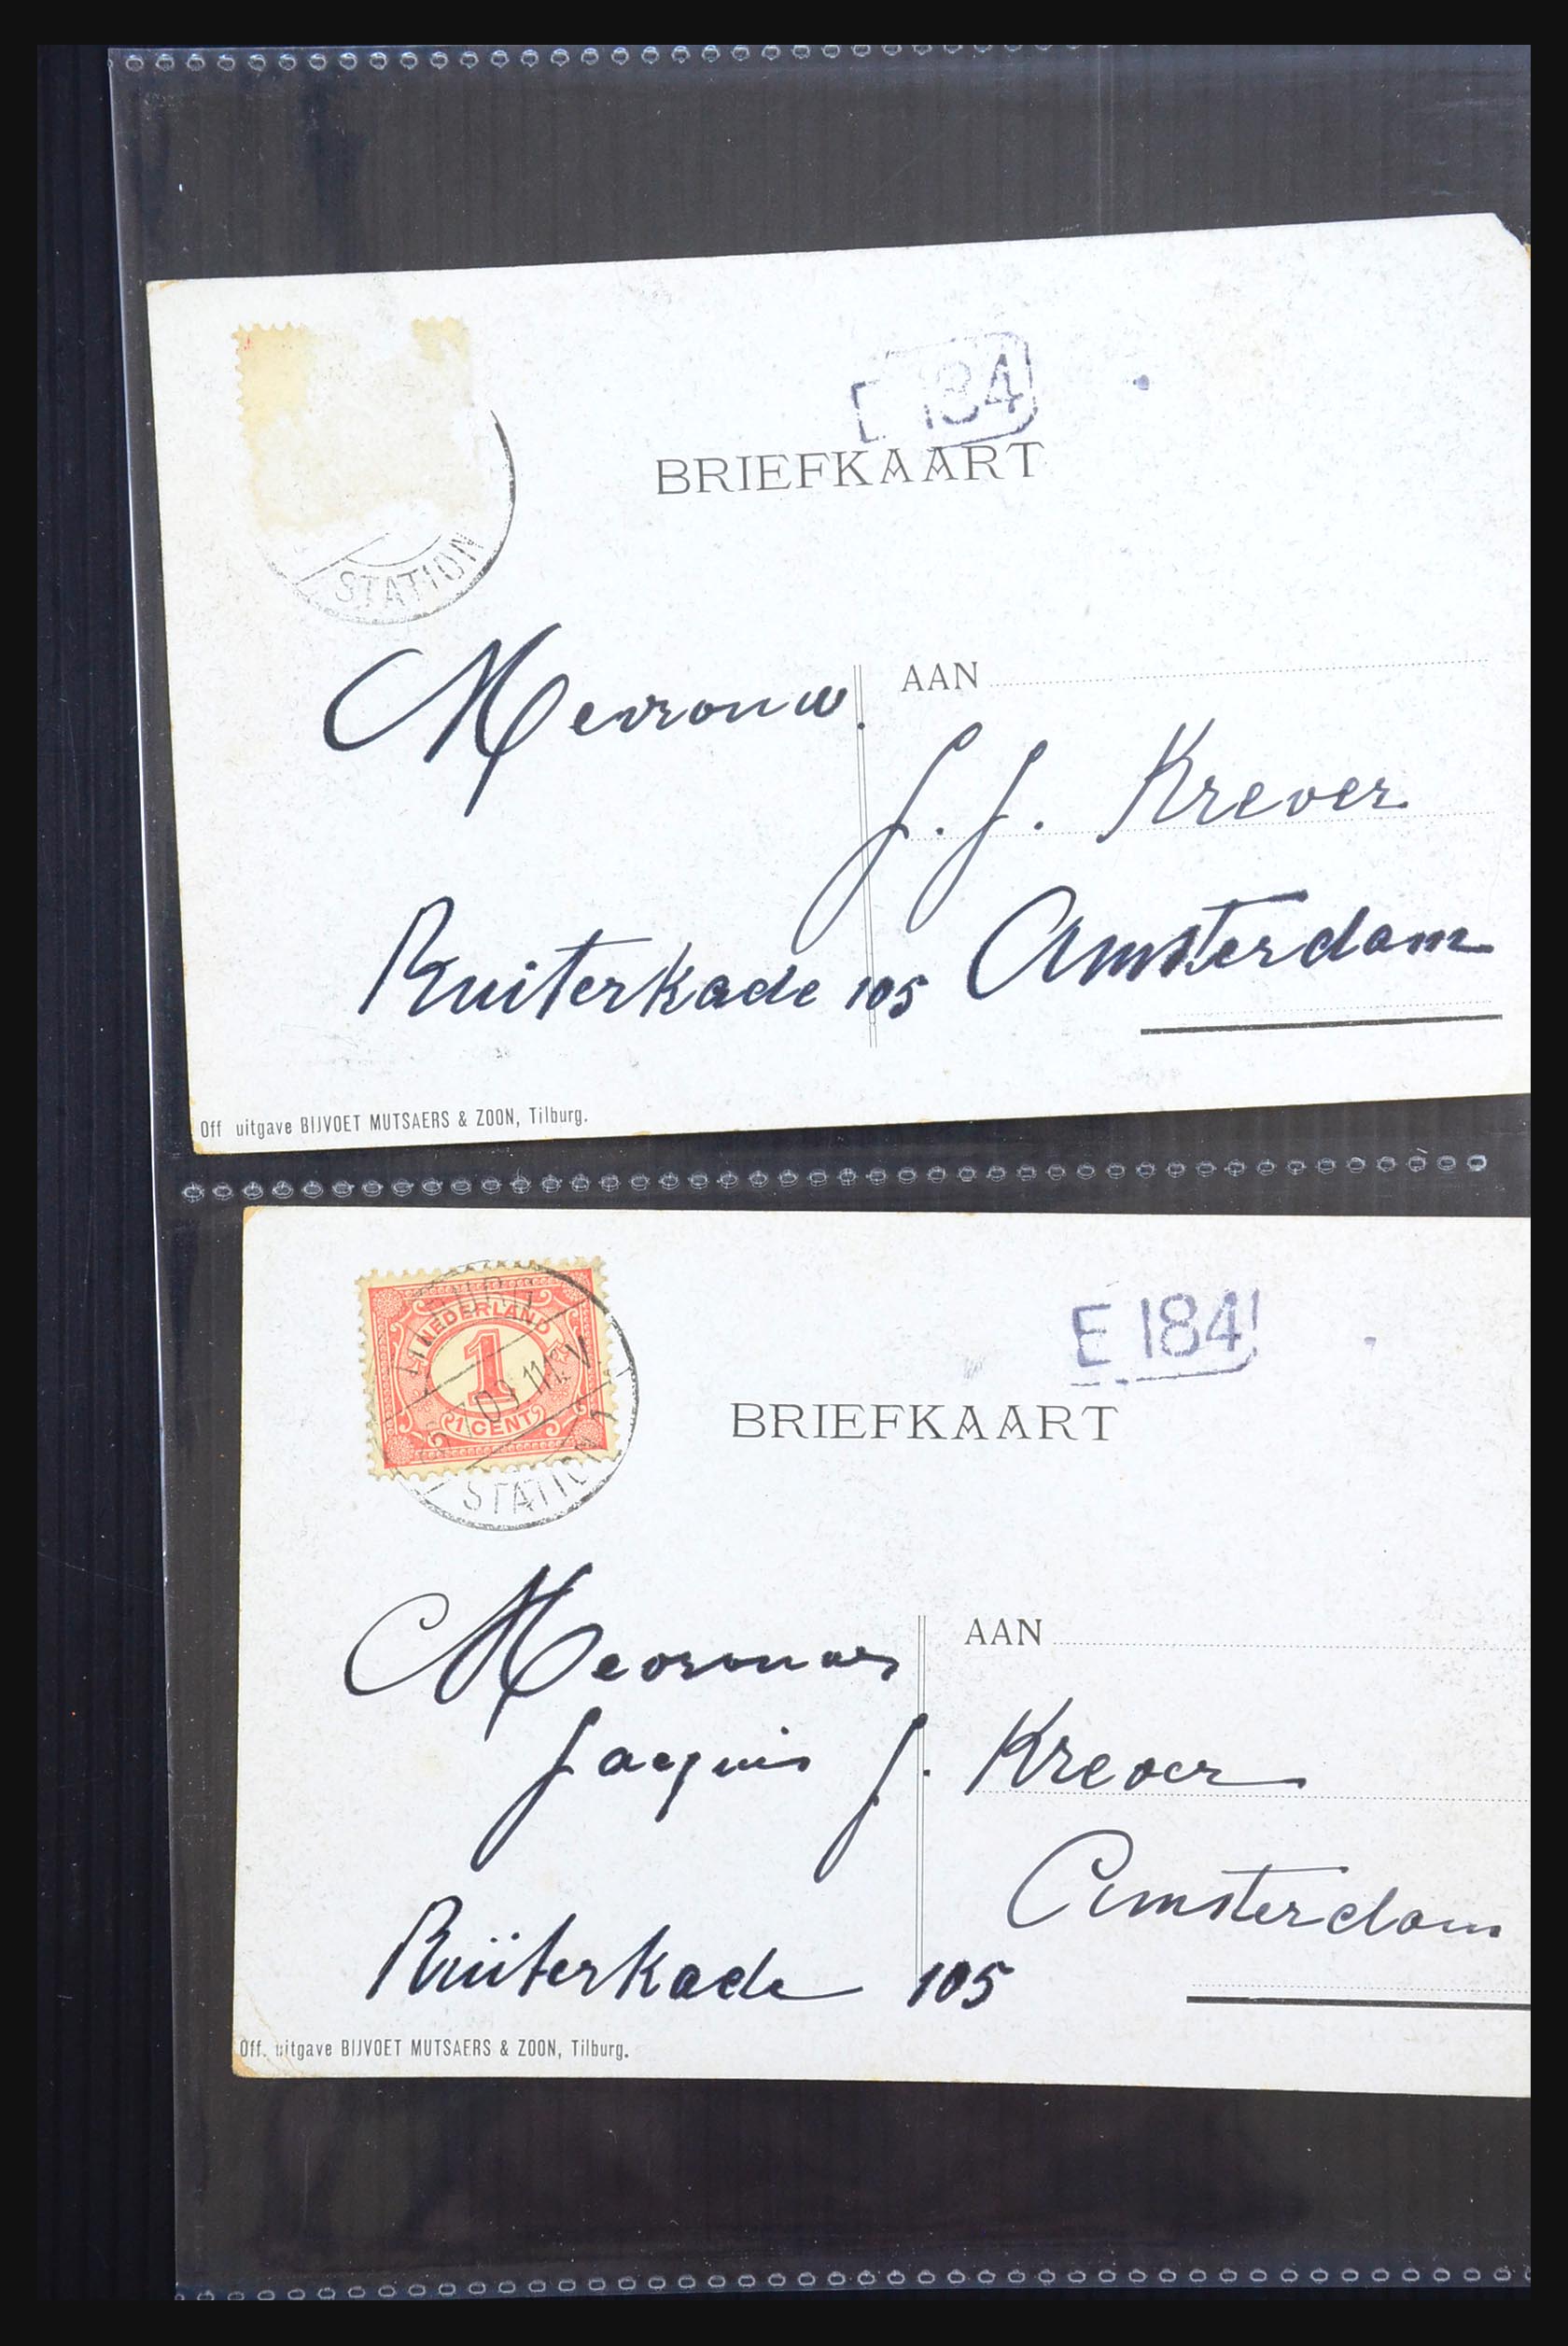 E 184
BRIEFKAART
STATION
Mevrouw. AAN
J. J. Krever
Ruiterkade 105 Amsterdam
Off uitgave BIJVOET MUTSAERS & ZOON, Tilburg.
NEDERLAND
1
1 CENT
STATION
E 184
BRIEFKAART
Mevrouw AAN
Jacques J. Krever
Amsterdam
Ruiterkade 105
Off. uitgave BIJVOET MUTSAERS & ZOON, Tilburg.